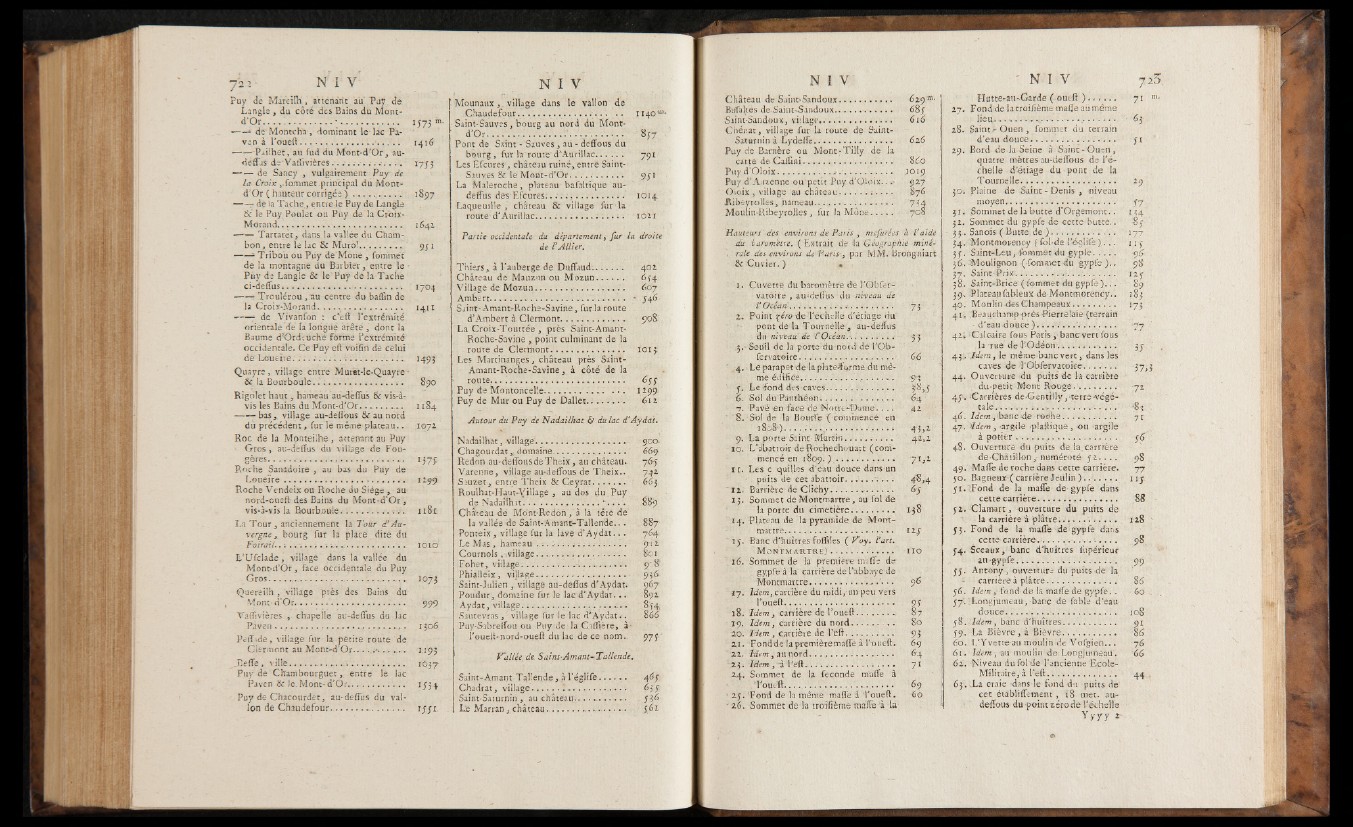 722 N I V
Puy de Mareilh, attenant au Puy de
Langle, du côté des Bains du Mont-
d'Or........ 1573 m.
—— de Montcha, dominant le lac Pa-
ven à l'ouest........ 1416
—— Pailhet, au sud du Mont-d'Or, au-
dessus de Vassivières........ 1755
—— de Sancy, vulgairement Puy de
la Croix, sommet principal du Mont-
d'Or (hauteur corrigée)........ 1897
—— de la Tache, entre le Puy de Langle
& le Puy Poulet ou Puy de la Croix-
Morand........ 1642
—— Tartaret, dans la vallée du Cham-
bon, entre le lac & Murol........ 951
—— Tribou ou Puy de Mone, sommet
de la montagne du Barbier, entre le
Puy de Langle & le Puy de la Tache
ci-dessus........ 1704
—— Troulérou, au centre du bassin de
la Croix-Morand........ 1411
—— de Vivanson : c'est l'extrémité
orientale de la longue arête, dont la
Baume d'Ordenche forme l'extrémité
occidentale. Ce Puy est voisin de celui
de Loueire........ 1493
Quayre, village entre Murat-le-Quayre
& la Bourboule........ 890
Rigolet haut, hameau au-dessus & vis-à-
vis les Bains du Mont-d'Or........ 1184
—— bas, village au-dessous & au nord
du précédent, sur le même plateau.. 1072
Roc de la Monteilhe, attenant au Puy
Gros, au-dessus du village de Fou-
gères........ 1375
Roche Sanadoire, au bas du Puy de
Loueire........ 1299
Roche Vendeix ou Roche du Siége, au
nord-ouest des Bains du Mont-d'Or,
vis-à-vis la Bourboule........ 1181
La Tour, anciennement la Tour d'Au-
vergne, bourg sur la place dite du
Foirail........ 1010
L'Usclade, village dans la vallée du
Mont-d'Or, face occidentale du Puy
Gros........ 1073
Quereilh, village près des Bains du
Mont-d'Or........ 999
Vassivières, chapelle au-dessus du lac
Paven........ 1306
Pessade, village sur la petite route de
Clermont au Mont-d'Or........ 1193
Besse, ville........ 1037
Puy de Chambourguet, entre le lac
Paven & le Mont-d'Or........ 1534
Puy de Chacourdet, au-dessus du val-
lon de Chaudefour........ 1551
N I V
Mounaux, village dans le vallon de
Chaudefour........ 1140 m.
Saint-Sauves, bourg au nord du Mont-
d'Or........ 857
Pont de Saint-Sauves, au-dessous du
bourg, sur la route d'Aurillac...... 791
Les Escures, château ruiné, entre Saint-
Sauves & le Mont-d'Or........ 951
La Maleroche, plateau basaltique au-
dessus des Escures........ 1014
Laqueuille, château & village sur la
route d'Aurillac........ 1021
Partie occidentale du département, sur la droite
de l'Allier.
Thiers, à l'auberge de Duffaud....... 402
Château de Mauzun ou Mozun....... 654
Village de Mozun........ 607
Ambert........ 546
Saint-Amant-Roche-Savine, sur la route
d'Ambert à Clermont........ 908
La Croix-Tourtée, près Saint-Amant-
Roche-Savine, point culminant de la
route de Clermont........ 1013
Les Martinanges, château près Saint-
Amant-Roche-Savine, à côté de la
route........ 655
Puy de Montoncelle........ 1299
Puy de Mur ou Puy de Dallet........ 612
Autour du Puy de Nadailhat & du lac d'Aydat.
Nadailhat, village........ 900
Chagourdat, domaine........ 669
Redon au-dessous de Theix, au château. 765
Varenne, village au-dessous de Theix.. 742
Sauzet, entre Theix & Ceyrat........ 663
Roulhat-Haut-Village, au dos du Puy
de Nadailhat........ 889
Château de Mont-Redon, à la tête de
la vallée de Saint-Amant-Tallende... 887
Ponteix, village sur la lave d'Aydat... 764
Le Mas, hameau........ 912
Cournols, village........ 801
Fohet, village........ 908
Phialleix, village........ 936
Saint-Julien, village au-dessus d'Aydat. 967
Poudur, domaine sur le lac d'Aydat... 892
Aydat, village........ 854
Sauteyras, village sur le lac d'Aydat.. 866
Puy-Subressou ou Puy de la Cassière, à
l'ouest-nord-ouest du lac de ce nom.. 975
Vallée de Saint-Amant-Tallende.
Saint-Amant Tallende, à l'église...... 465
Chadrat, village........ 635
Saint-Saturnin, au château........ 536
Le Marran, château........ 561
N I V
Château de Saint-Sandoux........ 629 m.
Basaltes de Saint-Sandoux........ 685
Saint-Sandoux, village........ 616
Chénat, village sur la route de Saint-
Saturnin à Lydesse........ 626
Puy de Barnère ou Mont-Tilly de la
carte de Cassini........ 860
Puy d'Oloix........ 1019
Puy d'Auzenne ou petit Puy d'Oloix... 927
Oloix, village au château........ 876
Ribeyrolles, hameau........ 734
Moulin-Ribeyrolles, sur la Mône..... 708
Hauteurs des environs de Paris, mesurées à l'aide
du baromètre. (Extrait de la Géographie miné-
rale des environs de Paris, par MM. Brongniart
& Cuvier.)
1. Cuvette du baromètre de l'Obser-
vatoire, au-dessus du niveau de
l'Océan........ 73
2. Point zéro de l'échelle d'étiage du
pont de la Tournelle, au-dessus
du niveau de l'Océan........ 33
3. Seuil de la porte du nord de l'Ob-
servatoire........ 66
4. Le parapet de la plate-forme du mê-
me édifice........ 93
5. Le fond des caves........ 38,5
6. Sol du Panthéon........ 64
7. Pavé en face de Notre-Dame.... 42
8. Sol de la Bourse (commencé en
1808)........ 43,2
9. La porte Saint-Martin........ 42,2
10. L'abattoir de Rochechouart (com-
mencé en 1809.)........ 71,2
11. Les coquilles d'eau douce dans un
puits de cet abattoir........ 48,4
12. Barrière de Clichy........ 65
13. Sommet de Montmartre, au sol de
la porte du cimetière........ 138
14. Plateau de la pyramide de Mont-
martre........ 125
15. Banc d'huîtres fossiles (Voy. l'art.
MONTMARTRE)........ 110
16. Sommet de la première masse de
gypse à la carrière de l'abbaye de
Montmartre........ 96
17. Idem, carrière du midi, un peu vers
l'ouest........ 95
18. Idem, carrière de l'ouest........ 87
19. Idem, carrière du nord........ 80
20. Idem, carrière de l'est........ 93
21. Fond de la première masse à l'ouest. 69
22. Idem, au nord........ 64
23. Idem, à l'est........ 71
24. Sommet de la seconde masse à
l'ouest........ 69
25. Fond de la même masse à l'ouest. 60
26. Sommet de la troisième masse à la
N I V 723
Hutte-au-Garde (ouest)...... 71 m.
27. Fond de la troisième masse au même
lieu........ 63
28. Saint-Ouen, sommet du terrain
d'eau douce........ 51
29. Bord de la Seine à Saint-Ouen,
quatre mètres au-dessous de l'é-
chelle d'étiage du pont de la
Tournelle........ 29
30. Plaine de Saint-Denis, niveau
moyen........ 57
31. Sommet de la butte d'Orgemont.. 134
32. Sommet du gypse de cette butte.. 85
33. Sanois (Butte de)........ 177
34. Montmorency (sol de l'église)... 115
35. Saint-Leu, sommet du gypse..... 96
36. Moulignon (sommet du gypse).. 98
37. Saint-Prix........ 125
38. Saint-Brice (sommet du gypse)... 89
39. Plateau sableux de Montmorency.. 181
40. Moulin des Champeaux........ 173
41. Beauchamp près Pierrelaie (terrain
d'eau douce)........ 77
42. Calcaire sous Paris, banc vert sous
la rue de l'Odéon........ 35
43. Idem, le même banc vert, dans les
caves de l'Observatoire....... 37,3
44. Ouverture du puits de la carrière
du petit Mont-Rouge........ 72
45. Carrières de Gentilly, terre végé-
tale........ 83
46. Idem, banc de roche........ 71
47. Idem, argile plastique, ou argile
à potier........ 56
48. Ouverture du puits de la carrière
de Châtillon, numéroté 52.... 98
49. Masse de roche dans cette carrière. 77
50. Bagneux (carrière Jeulin)....... 115
51. Fond de la masse de gypse dans
cette carrière........ 88
52. Clamart, ouverture du puits de
la carrière à plâtre........ 128
53. Fond de la masse de gypse dans
cette carrière........ 98
54. Sceaux, banc d'huîtres supérieur
au gypse........ 99
55. Antony, ouverture du puits de la
carrière à plâtre........ 86
56. Idem, fond de la masse de gypse.. 60
57. Longjumeau, banc de sable d'eau
douce........ 108
58. Idem, banc d'huîtres........ 91
59. La Bièvre, à Bièvre........ 86
60. L'Yvette au moulin de Vosgien... 76
61. Idem, au moulin de Longjumeau. 66
62. Niveau du sol de l'ancienne Ecole-
Militaire, à l'est........ 44
63. La craie dans le fond du puits de
cet établissement, 18 mèt. au-
dessous du point zéro de l'échelle
Yyyy 2